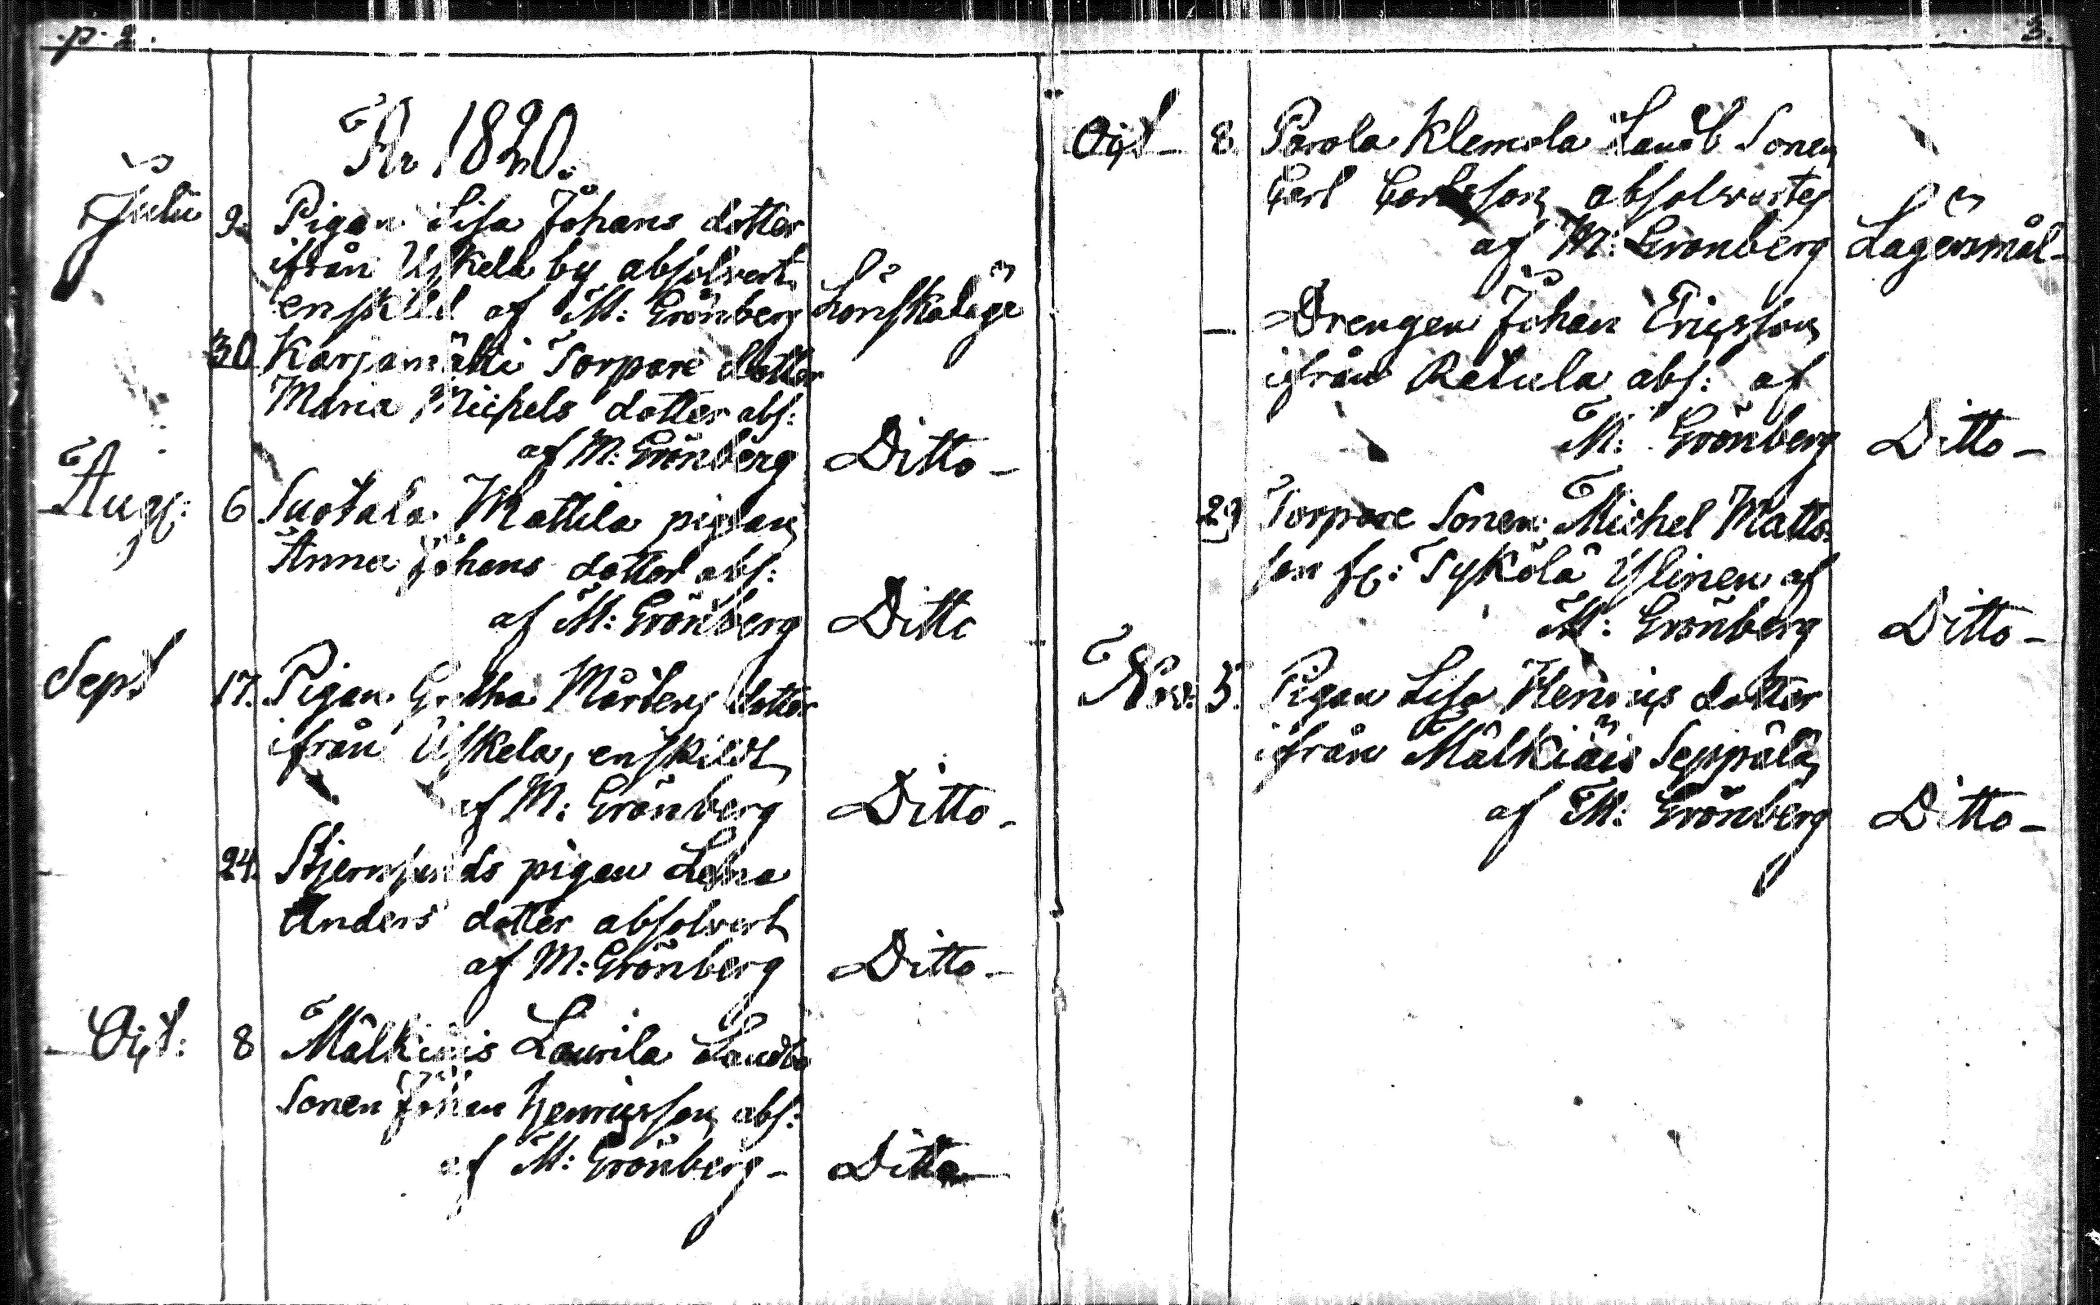 p. 2.
År 1820.
Julii 9. Pigan Lisa Johans dotter
ifrån Uskela by absolvert.
enskild af M: Grönberg Lönskaläge
30 Karjamätti Torpare dotter
Maria Michels dotter abs:
af M: Grönberg Ditto -
Aug: 6 Suotala Mattila pigan
Anna Johans dotter abs:
af M: Grönberg Ditto
Sept 17. Pigan Gretha Mårtens dotter
ifrån Uskela, enskildt
af M: Grönberg Ditto -
24. Stjernsunds pigan Lena
Anders dotter absolvert
af M: Grönberg Ditto -
Oct: 8 Mälkiäis Laurila Landbo
Sonen Johan Henricsson abs:
af M: Grönberg - Ditto -
3.
Oct - 8 Parola Klemola Landb Sonen
Carl Carlsson absolvertes
af M: Grönberg Lägersmål -
- Drengen Johan Ericsson
ifrån Retula abs: af
M: Grönberg Ditto -
29 Torpare Sonen Michel Matts-
son fr: Tykölä Ylinen af
M: Grönberg Ditto -
Nov: 5. Pigan Lisa Henrics dotter
ifrån Mälkiäis Seppälä
af M: Grönberg Ditto -